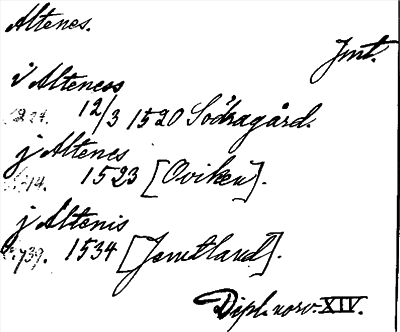 Altenes.
Jmt.
i Alteness
12/3 1520 Södragård.
j Altenes
1523 [Oviken].
j Altenis
1534 [Jemtland].
Dipl. norv. XIV.